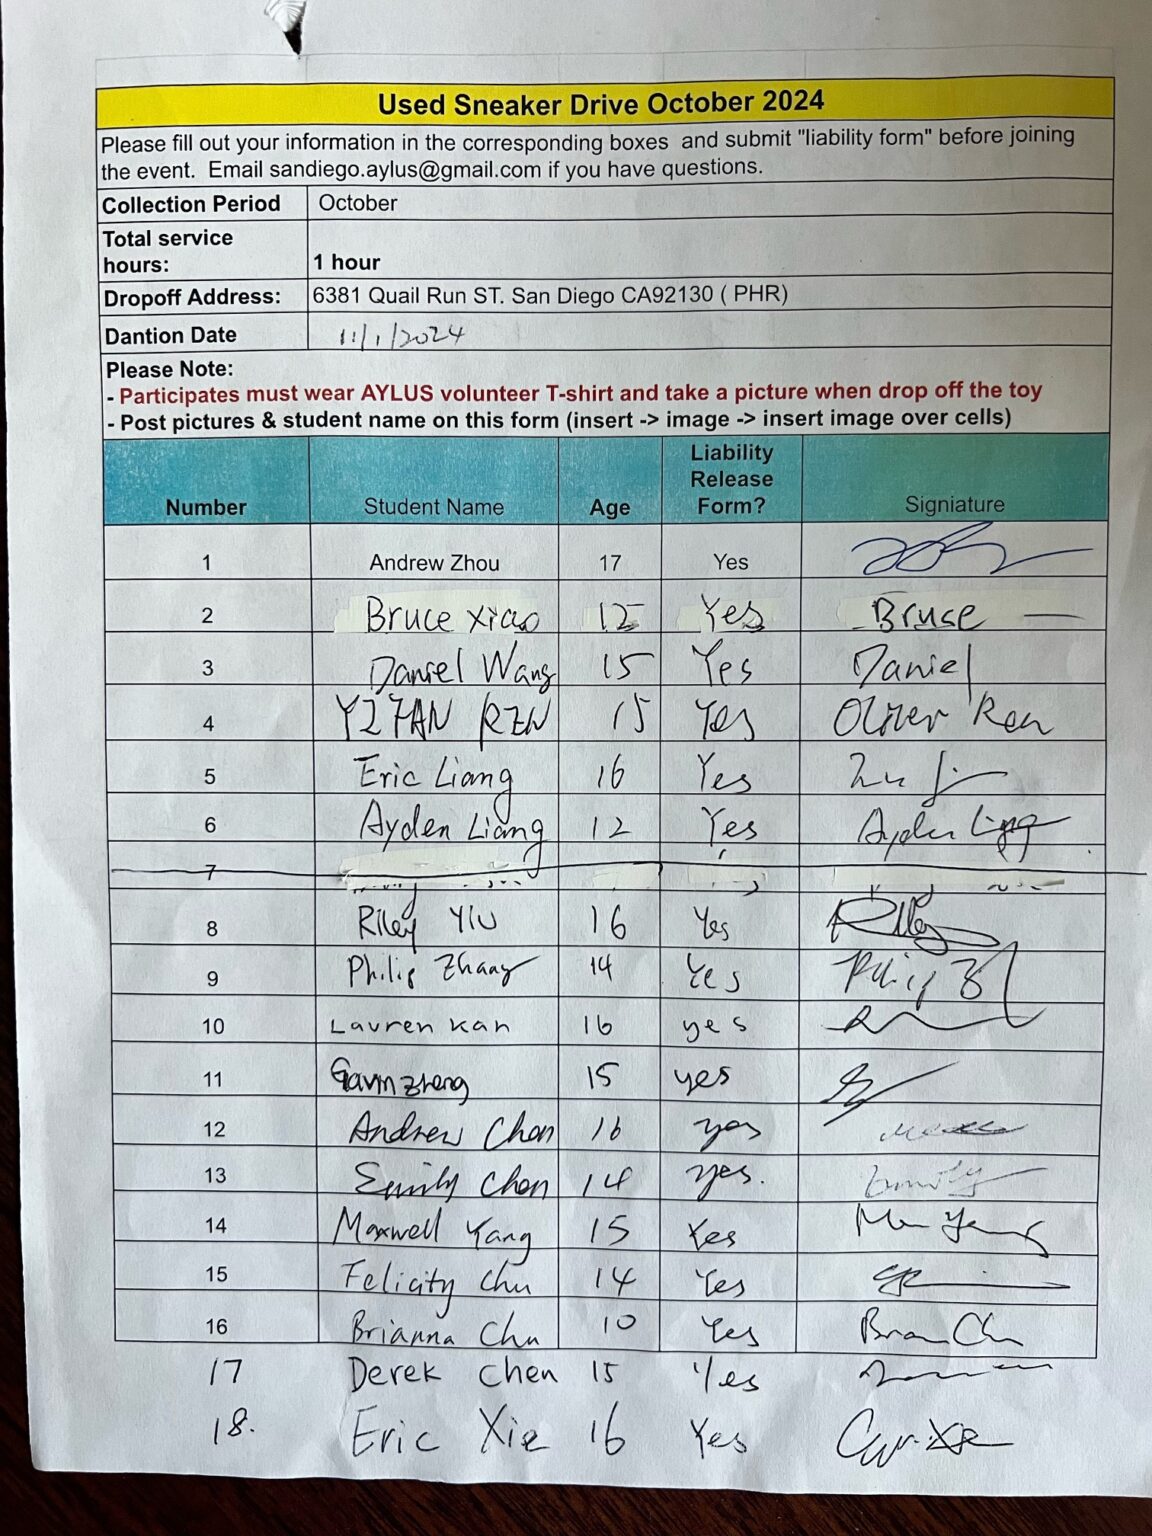 Used Sneaker Drive October 2024
Please fill out your information in the corresponding boxes and submit "liability form" before joining
the event. Email sandiego.aylus@gmail.com if you have questions.
Collection Period October
Total service
hours: 1 hour
Dropoff Address: 6381 Quail Run ST. San Diego CA92130 ( PHR)
Dantion Date 11/1/2024
Please Note:
- Participates must wear AYLUS volunteer T-shirt and take a picture when drop off the toy
- Post pictures & student name on this form (insert -> image -> insert image over cells)
Number Student Name Age Liability Release Form? Signiature
1 Andrew Zhou 17 Yes
2 Bruce Xiao 12 Yes Bruce
3 Daniel Wang 15 Yes Daniel
4 YIFAN REN 15 Yes Oliver Ren
5 Eric Liang 16 Yes
6 Ayden Liang 12 Yes Ayden Liang
7
8 Riley YIU 16 Yes Riley
9 Philip Zhang 14 Yes Philip Z
10 Lauren Kan 16 yes
11 Gavin Zheng 15 yes
12 Andrew Chen 16 yes
13 Emily Chen 14 yes. Emily
14 Maxwell Yang 15 Yes
15 Felicity Chu 14 Yes
16 Brianna Chu 10 Yes
17 Derek Chen 15 Yes
18. Eric Xie 16 Yes